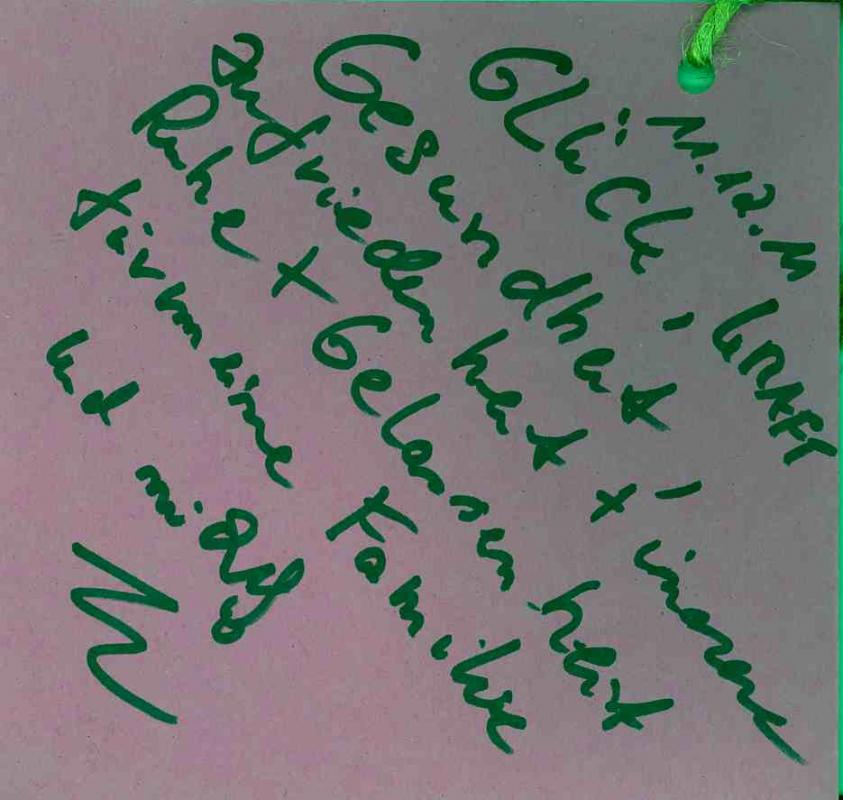 11.12.11
Glück, KRAFT
Gesundheit,
Zufriedenheit + innere
Ruhe + Gelassenheit
für meine Familie
und mich